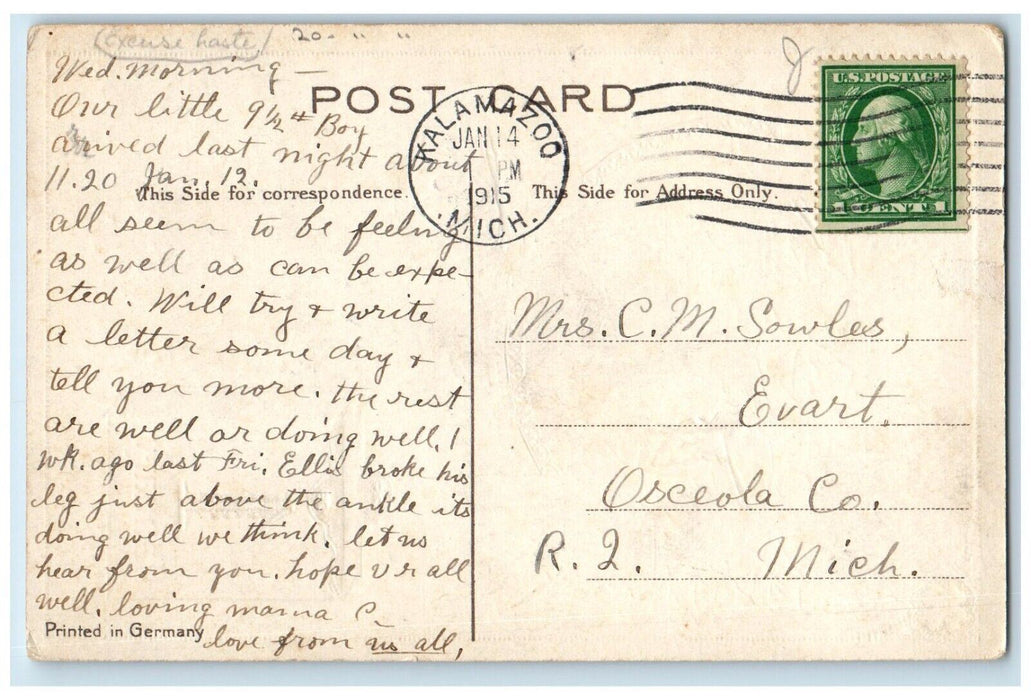 (Excuse haste) 20. " "
Wed. Morning —
Our little 9 1/2 # Boy
arrived last night about
11.20 Jan. 12.
all seem to be feeling
as well as can be expe-
cted. Will try + write
a letter some day +
tell you more. the rest
are well or doing well. 1
wk. ago last Fri. Ellis broke his
leg just above the ankle its
doing well we think. let us
hear from you. hope u r all
well. loving mama C
love from us all,
POST CARD
This Side for correspondence.
This Side for Address Only.
Printed in Germany
KALAMAZOO
JAN 14
PM
1915
MICH.
U.S. POSTAGE
1 CENT 1
Mrs. C. M. Sowles,
Evart.
Osceola Co.
R. 2. Mich.